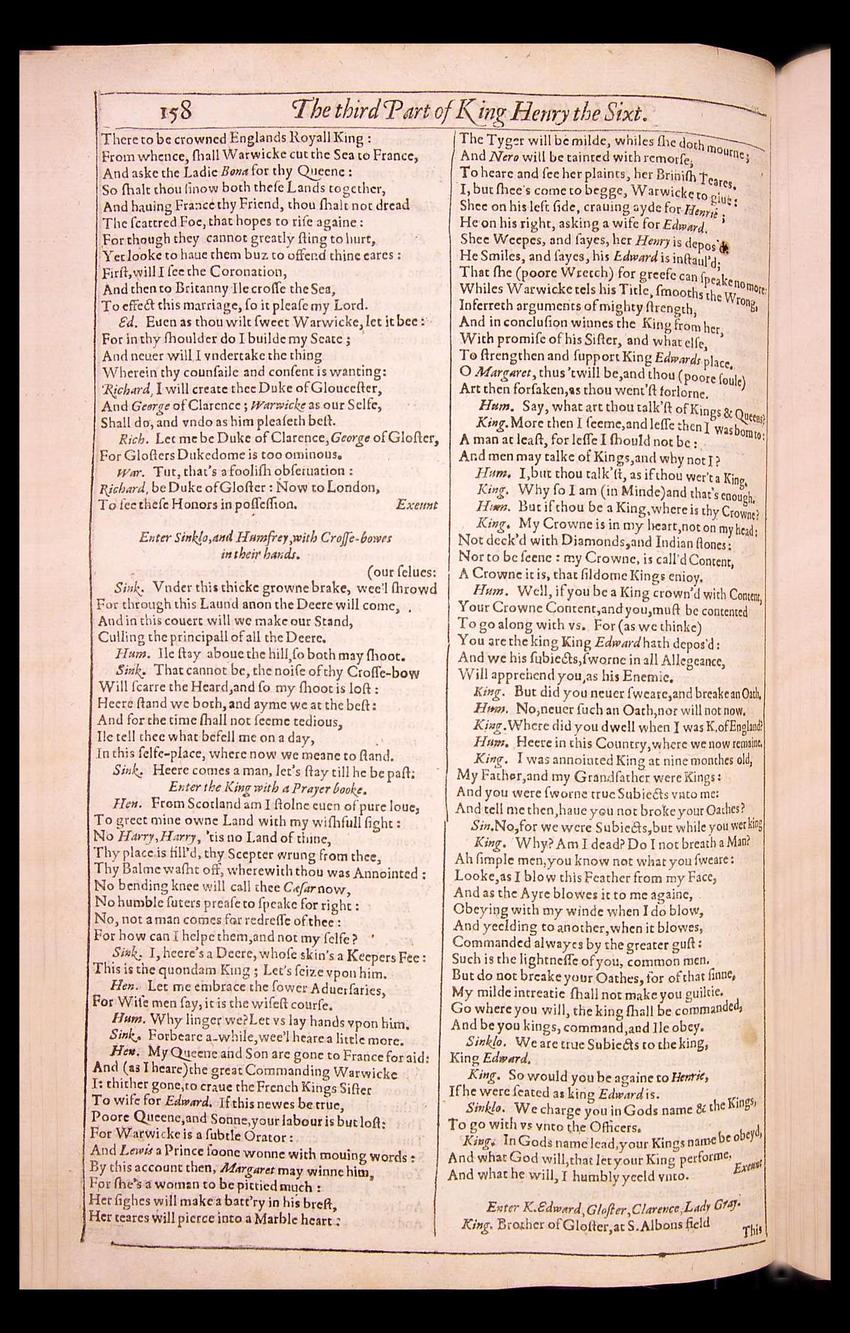 158
The third Part of King Henry the Sixt.
There to be crowned Englands Royall King :
From whence, ſhall Warwicke cut the Sea to France,
And aske the Ladie Bona for thy Queene :
So ſhalt thou ſinow both theſe Lands together,
And hauing France thy Friend, thou ſhalt not dread
The ſcattred Foe, that hopes to riſe againe :
For though they cannot greatly ſting to hurt,
Yet looke to haue them buz to offend thine eares :
Firſt, will I ſee the Coronation,
And then to Britanny Ile croſſe the Sea,
To effect this marriage, ſo it pleaſe my Lord.
Ed. Euen as thou wilt ſweet Warwicke, let it bee :
For in thy ſhoulder do I builde my Seate ;
And neuer will I vndertake the thing
Wherein thy counſaile and conſent is wanting:
Richard, I will create thee Duke of Glouceſter,
And George of Clarence ; Warwicke as our Selfe,
Shall do, and vndo as him pleaſeth beſt.
Rich. Let me be Duke of Clarence, George of Gloſter,
For Gloſters Dukedome is too ominous.
War. Tut, that's a fooliſh obſeruation :
Richard, be Duke of Gloſter : Now to London,
To ſee theſe Honors in poſſeſſion. Exeunt
Enter Sinklo, and Humfrey, with Croſſe-bowes
in their hands.
(our ſelues:
Sink. Vnder this thicke growne brake, wee'l ſhrowd
For through this Laund anon the Deere will come,
And in this couert will we make our Stand,
Culling the principall of all the Deere.
Hum. Ile ſtay aboue the hill, ſo both may ſhoot.
Sink. That cannot be, the noiſe of thy Croſſe-bow
Will ſcarre the Heard, and ſo my ſhoot is loſt :
Heere ſtand we both, and ayme we at the beſt:
And for the time ſhall not ſeeme tedious,
Ile tell thee what befell me on a day,
In this ſelfe-place, where now we meane to ſtand.
Sink. Heere comes a man, let's ſtay till he be paſt:
Enter the King with a Prayer booke.
Hen. From Scotland am I ſtolne euen of pure loue,
To greet mine owne Land with my wiſhfull ſight :
No Harry, Harry, 'tis no Land of thine,
Thy place is fill'd, thy Scepter wrung from thee,
Thy Balme waſht off, wherewith thou was Annointed :
No bending knee will call thee Cæſar now,
No humble ſuters preaſe to ſpeake for right :
No, not a man comes for redreſſe of thee :
For how can I helpe them, and not my ſelfe ?
Sink. I, heere's a Deere, whoſe skin's a Keepers Fee :
This is the quondam King ; Let's ſeize vpon him.
Hen. Let me embrace the ſower Aduerſaries,
For Wiſe men ſay, it is the wiſeſt courſe.
Hum. Why linger we? Let vs lay hands vpon him.
Sink. Forbeare a-while, wee'l heare a little more.
Hen. My Queene and Son are gone to France for aid:
And (as I heare) the great Commanding Warwicke
I: thither gone, to craue the French Kings Siſter
To wife for Edward. If this newes be true,
Poore Queene, and Sonne, your labour is but loſt:
For Warwicke is a ſubtle Orator :
And Lewis a Prince ſoone wonne with mouing words :
By this account then, Margaret may winne him,
For ſhe's a woman to be pittied much :
Her ſighes will make a batt'ry in his breſt,
Her teares will pierce into a Marble heart :
The Tyger will be milde, whiles ſhe doth mourne;
And Nero will be tainted with remorſe,
To heare and ſee her plaints, her Briniſh Teares.
I, but ſhee's come to begge, Warwicke to giue :
Shee on his left ſide, crauing ayde for Henrie ;
He on his right, asking a wife for Edward.
Shee Weepes, and ſayes, her Henry is depos'd:
He Smiles, and ſayes, his Edward is inſtaul'd;
That ſhe (poore Wretch) for greefe can ſpeake no more:
Whiles Warwicke tels his Title, ſmooths the Wrong,
Inferreth arguments of mighty ſtrength,
And in concluſion winnes the King from her,
With promiſe of his Siſter, and what elſe,
To ſtrengthen and ſupport King Edwards place.
O Margaret, thus 'twill be, and thou (poore ſoule)
Art then forſaken, as thou went'ſt forlorne.
Hum. Say, what art thou talk'ſt of Kings & Queens?
King. More then I ſeeme, and leſſe then I was born to:
A man at leaſt, for leſſe I ſhould not be :
And men may talke of Kings, and why not I ?
Hum. I, but thou talk'ſt, as if thou wer't a King.
King. Why ſo I am (in Minde) and that's enough.
Hum. But if thou be a King, where is thy Crowne?
King. My Crowne is in my heart, not on my head:
Not deck'd with Diamonds, and Indian ſtones:
Nor to be ſeene : my Crowne, is call'd Content,
A Crowne it is, that ſildome Kings enioy.
Hum. Well, if you be a King crown'd with Content,
Your Crowne Content, and you, muſt be contented
To go along with vs. For (as we thinke)
You are the king King Edward hath depos'd :
And we his ſubiects, ſworne in all Allegeance,
Will apprehend you, as his Enemie.
King. But did you neuer ſweare, and breake an Oath.
Hum. No, neuer ſuch an Oath, nor will not now.
King. Where did you dwell when I was K. of England?
Hum. Heere in this Country, where we now remaine.
King. I was annointed King at nine monthes old,
My Father, and my Grandfather were Kings :
And you were ſworne true Subiects vnto me:
And tell me then, haue you not broke your Oathes?
Sin. No, for we were Subiects, but while you wer king
King. Why? Am I dead? Do I not breath a Man?
Ah ſimple men, you know not what you ſweare :
Looke, as I blow this Feather from my Face,
And as the Ayre blowes it to me againe,
Obeying with my winde when I do blow,
And yeelding to another, when it blowes,
Commanded alwayes by the greater guſt :
Such is the lightneſſe of you, common men.
But do not breake your Oathes, for of that ſinne,
My milde intreatie ſhall not make you guiltie.
Go where you will, the king ſhall be commanded,
And be you kings, command, and Ile obey.
Sinklo. We are true Subiects to the king,
King Edward.
King. So would you be againe to Henrie,
If he were ſeated as king Edward is.
Sinklo. We charge you in Gods name & the Kings,
To go with vs vnto the Officers.
King. In Gods name lead, your Kings name be obeyd,
And what God will, that let your King performe.
And what he will, I humbly yeeld vnto. Exeunt
Enter K. Edward, Gloſter, Clarence, Lady Gray.
King. Brother of Gloſter, at S. Albons field
This